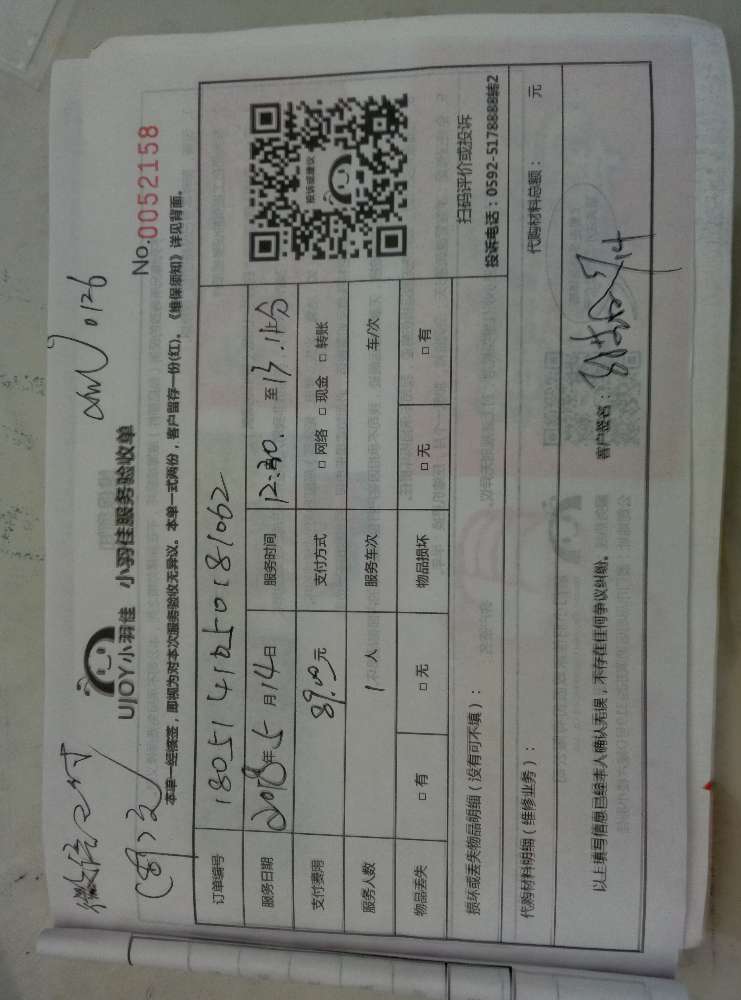 微信支付
(89元)
0126
UJOY小羽佳 小羽佳服务验收单
No.0052158
本单一经核签，即视为对本次服务验收无异议。本单一式两份，客户留存一份(红)。《维保须知》详见背面。
订单编号
服务日期 2018年5月14日 服务时间 12:30. 至13.
投诉或建议
支付费用 89.00元 支付方式 □网络 □现金 □转账
服务人数 1人 服务车次 车/次
物品丢失 □有 □无 物品损坏 □无 □有
扫码评价或投诉
投诉电话：0592-5178888转2
损坏或丢失物品明细（没有可不填）：
代购材料明细（维修业务）： 代购材料总额： 元
以上填写信息已经本人确认无误，不存在任何争议纠纷。 客户签名：